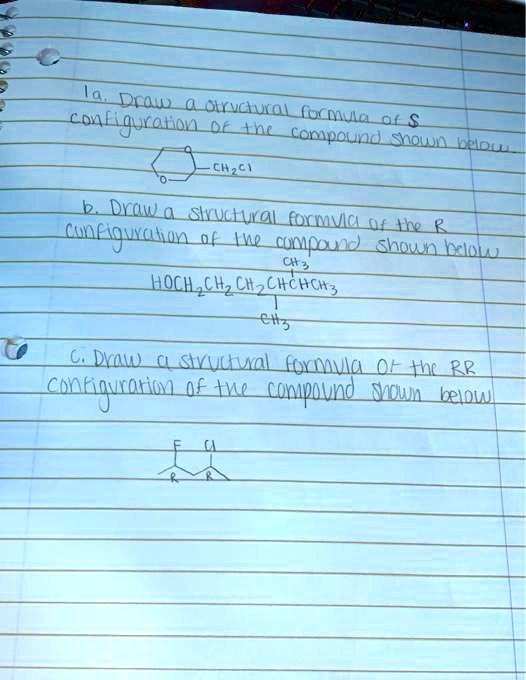 1a. Draw a structural formula of S
configuration of the compound shown below.
O
O
CH2Cl
b. Draw a structural formula of the R
configuration of the compound shown below
CH3
HOCH2CH2CH2CHCHCH3
CH3
c. Draw a structural formula of the RR
configuration of the compound shown below
F Cl
R R